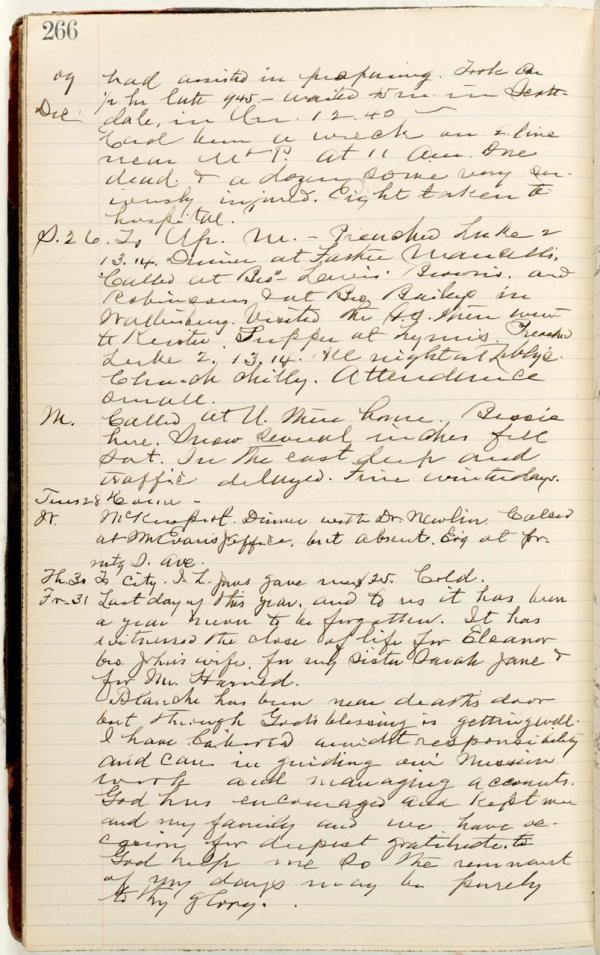 266
09 had assisted in preparing. Took car
Dec 1/2 hr late 945 - waited in Scott-
dale, in 12.40
Had been a wreck on line
near Mt P. at 11 a.m. One
dead & a dozen some very ser-
iously injured. Eight taken to
hospital.
S. 26. To M. - Preached Luke 2
13.14. Dinner at
Called at Bros Lewis' Brown's, and
Robinsons, & at Bro Baileys in
Visited the S.S. then went
to Supper at Preached
Luke 2, 13,14. All night at
Church chilly. Attendance
small.
M. Called at U. then home. Bessie
here. Snow several inches fell
Sat. In the east deep and
traffic delayed. Fine winter days.
Tues 28 Home -
W. McKeesport. Dinner with Dr. Newlin. Called
at office, but absent. at
mtg 5. ave.
Th. 30 To City. gave me $25. Cold.
Fr. 31 Last day of this year, and to us it has been
a year never to be forgotten. It has
witnessed the close of life for Eleanor
bro John's wife, for my sister Sarah Jane &
for Mr. Harned.
Blanche has been near deaths door
but through Gods blessing is getting well.
I have labored amidst responsibility
and care in guiding our Mission
work and managing accounts.
God has encouraged and kept me
and my family and we have oc-
casion for deepest gratitude to
God help me so the remnant
of my days may be purely
to thy glory.